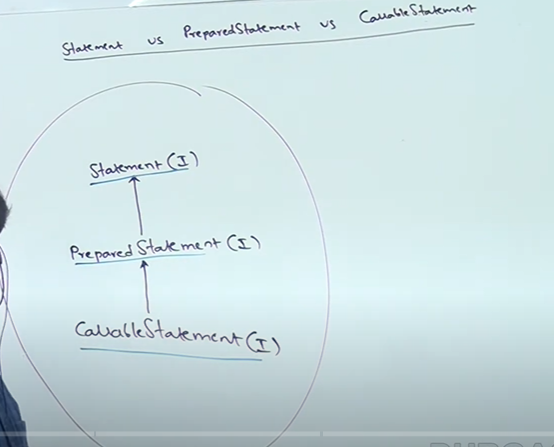 Statement vs PreparedStatement vs CallableStatement
Statement (I)
PreparedStatement (I)
CallableStatement (I)